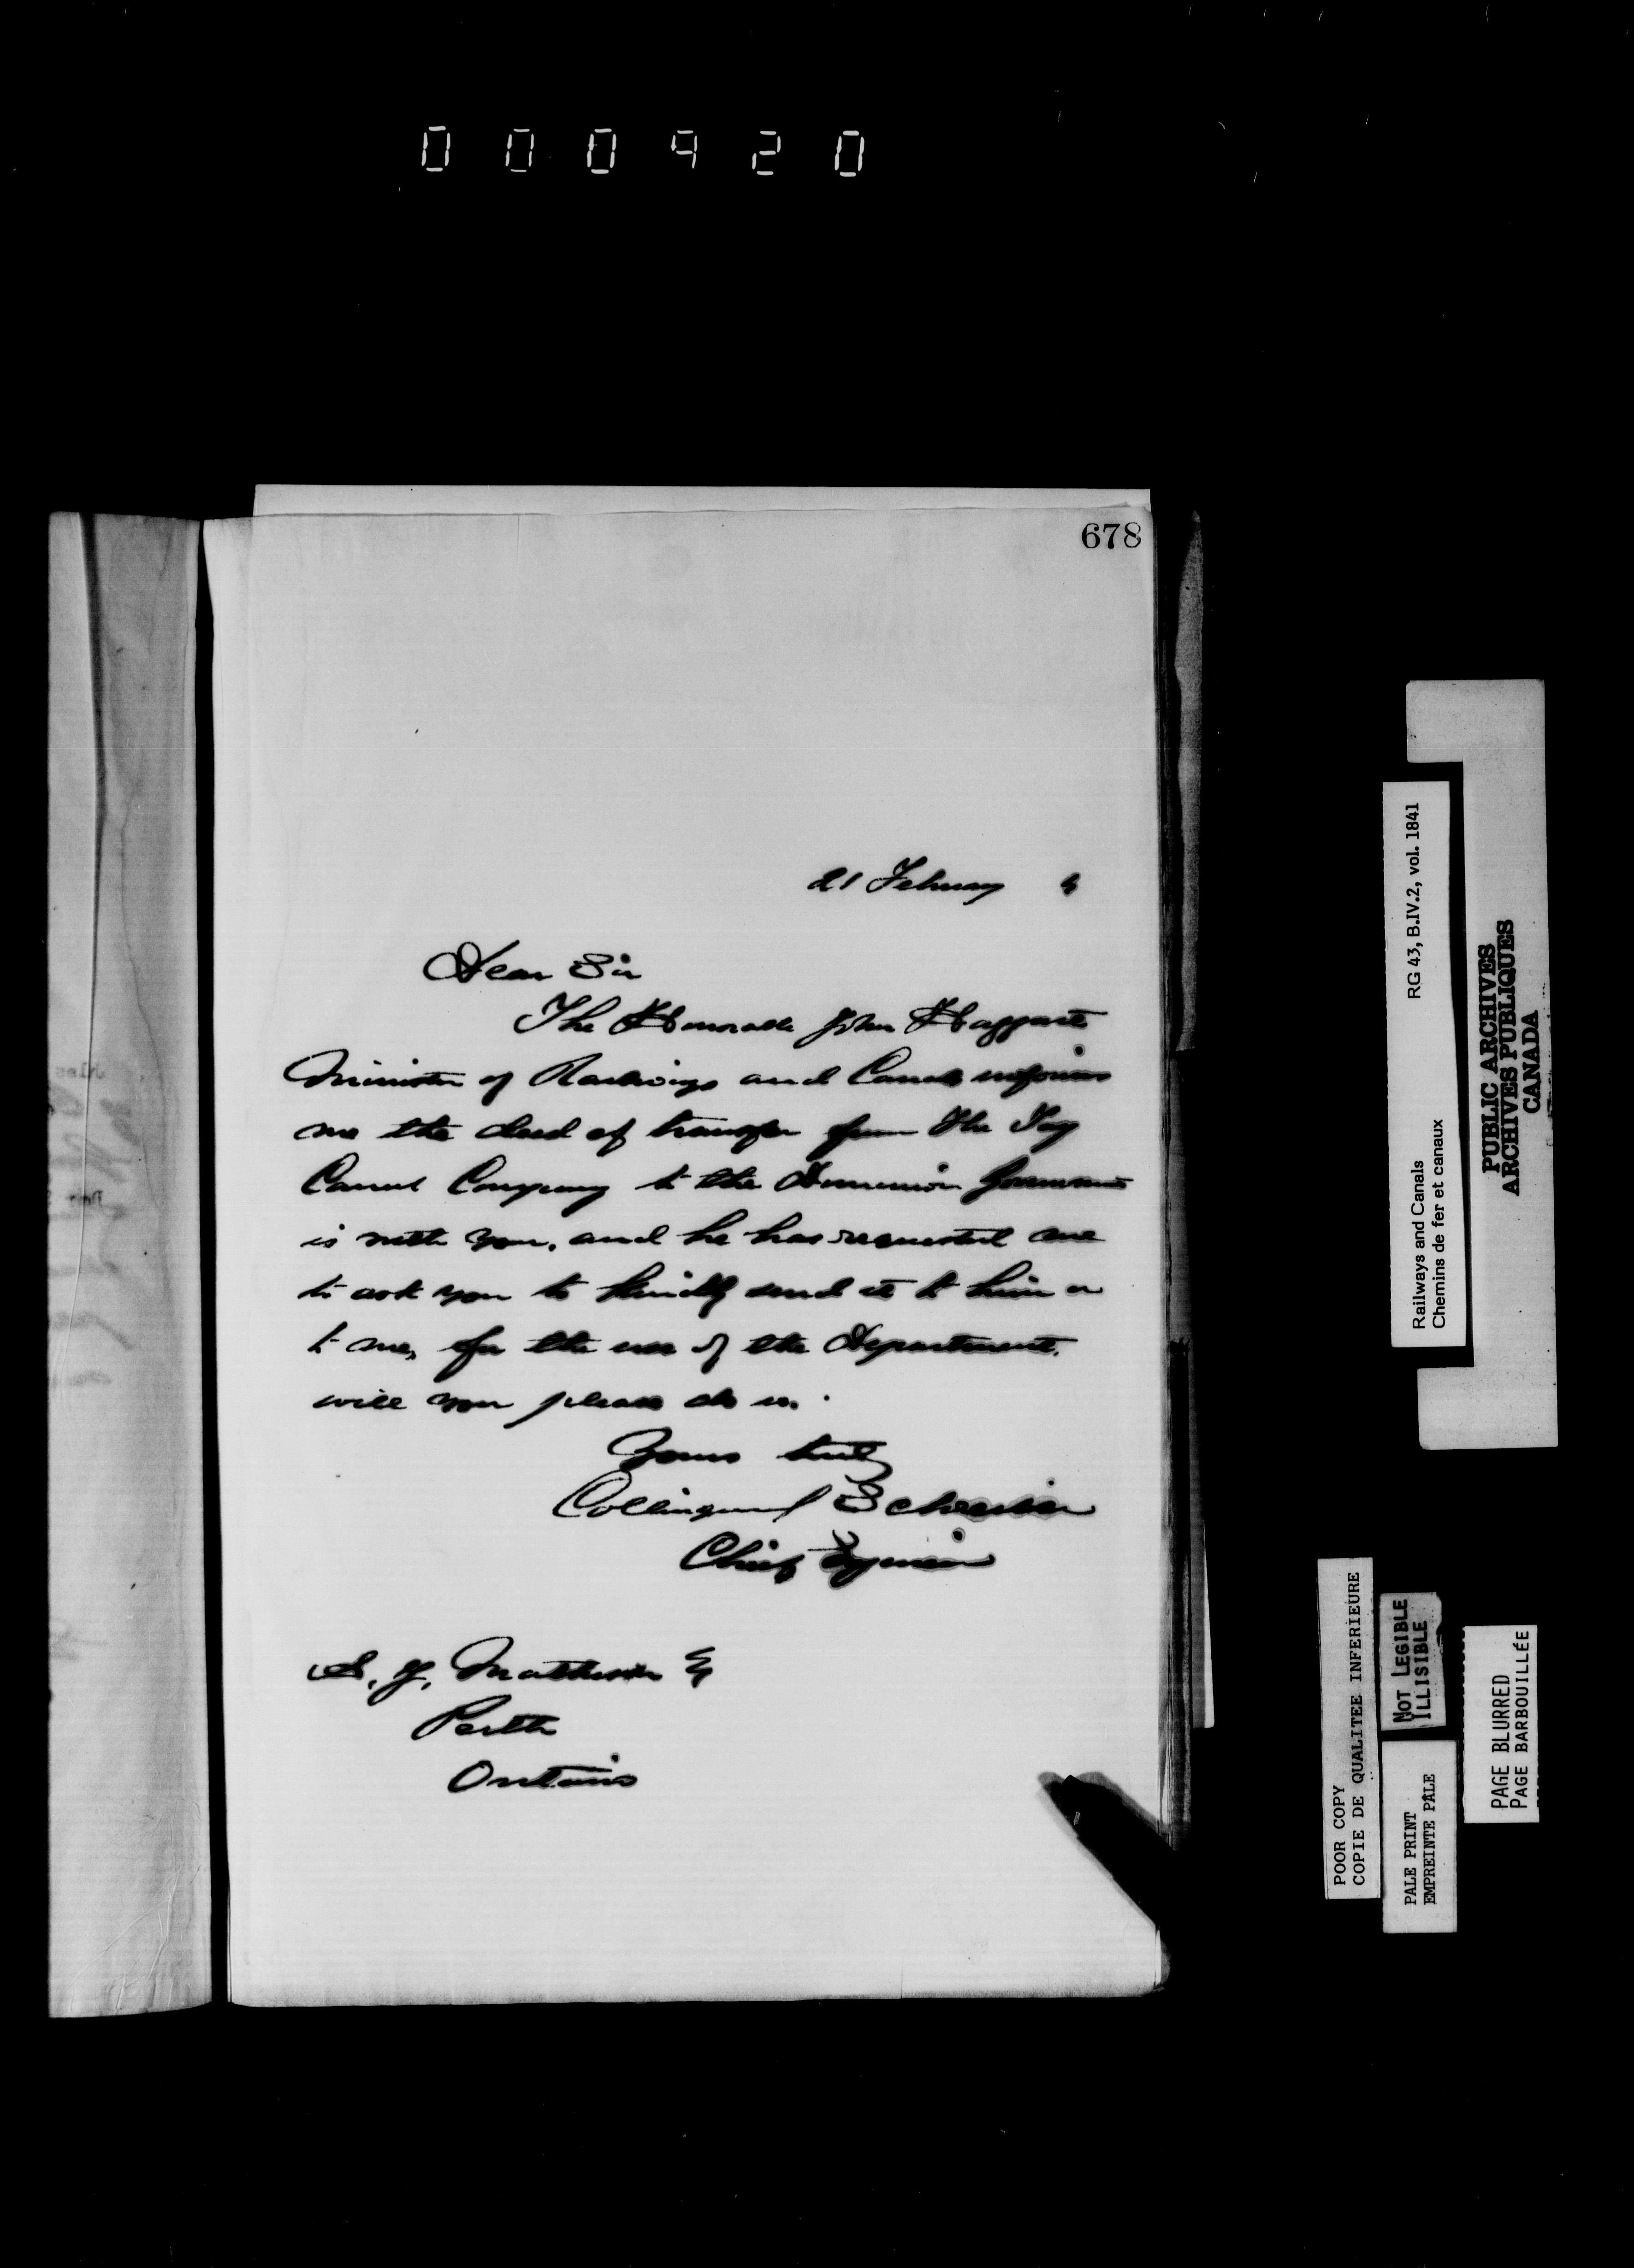 000920
678
21 February 4
Dear Sir
The Honorable John Haggart
Minister of Railways and Canals informs
me the deed of transfer from the Tay
Canal Company to the Dominion Government
is with you, and he has requested me
to ask you to kindly send it to him or
to me, for the use of the Department.
will you please do so.
Yours truly
Collingwood Schreiber
Chief Engineer
Matheson
Perth
Ontario
Railways and Canals RG 43, B.IV.2, vol. 1841
Chemins de fer et canaux
PUBLIC ARCHIVES
ARCHIVES PUBLIQUES
CANADA
POOR COPY
COPIE DE QUALITEE INFERIEURE
NOT LEGIBLE
ILLISIBLE
PALE PRINT
EMPREINTE PÂLE
PAGE BLURRED
PAGE BARBOUILLÉE